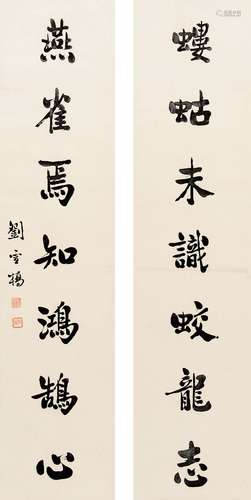 螻蛄未識蛟龍志
燕雀焉知鴻鵠心
劉雪楊